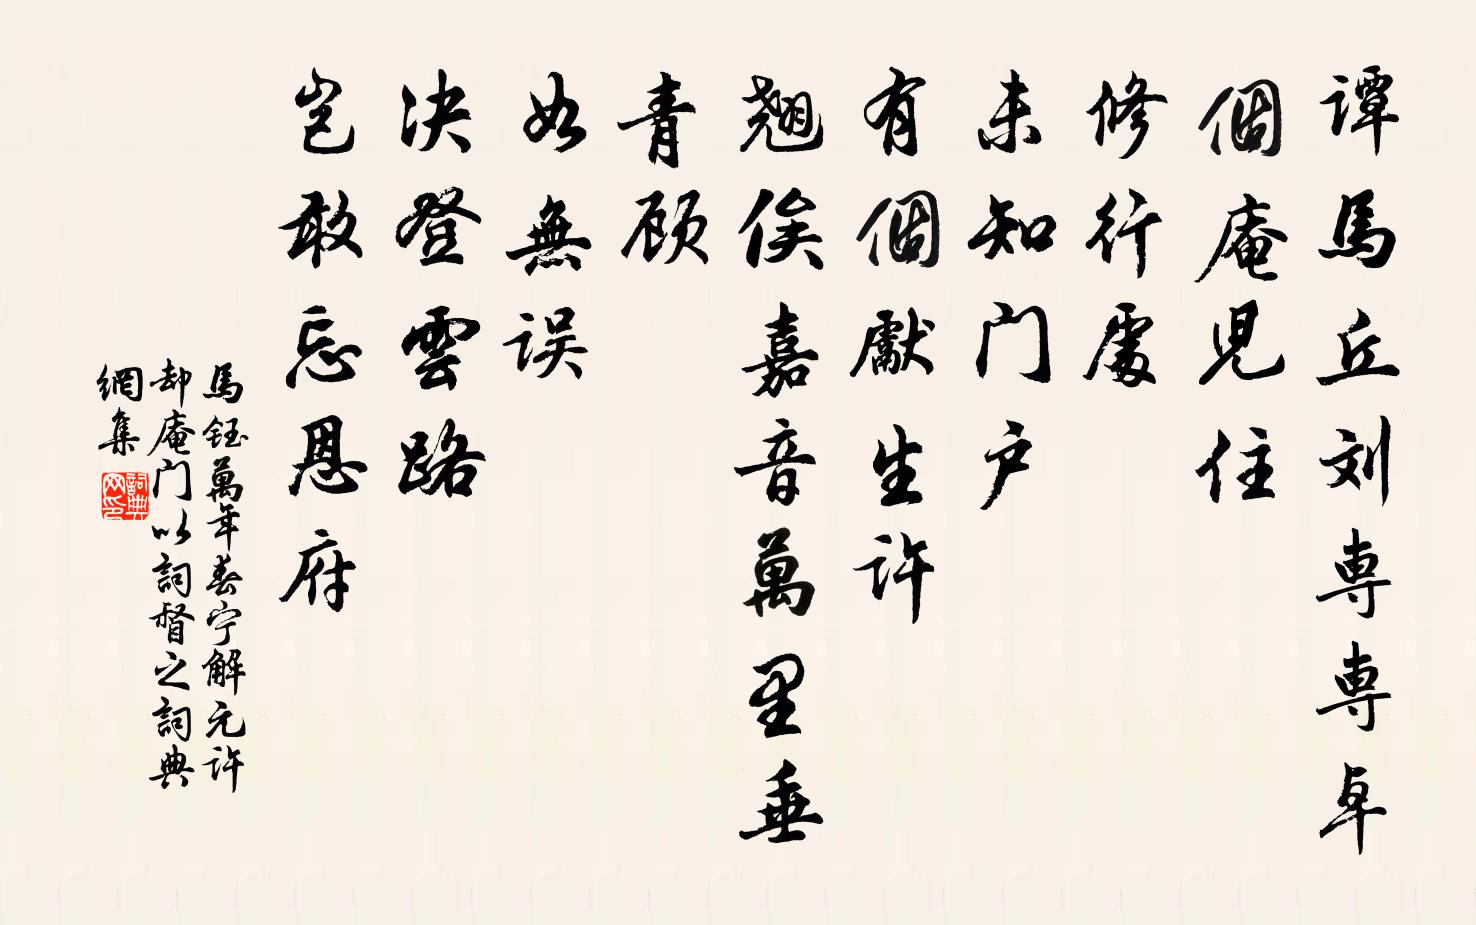 谭馬丘刘専専卓
個庵児住
修行處
未知门户
有個獻生许
翘俟嘉音萬里垂
青顾
如無误
决登雲路
岂敢忘恩府
馬鈺萬年春宁解元许
却庵门以詞督之詞典
網集
詞典
网印